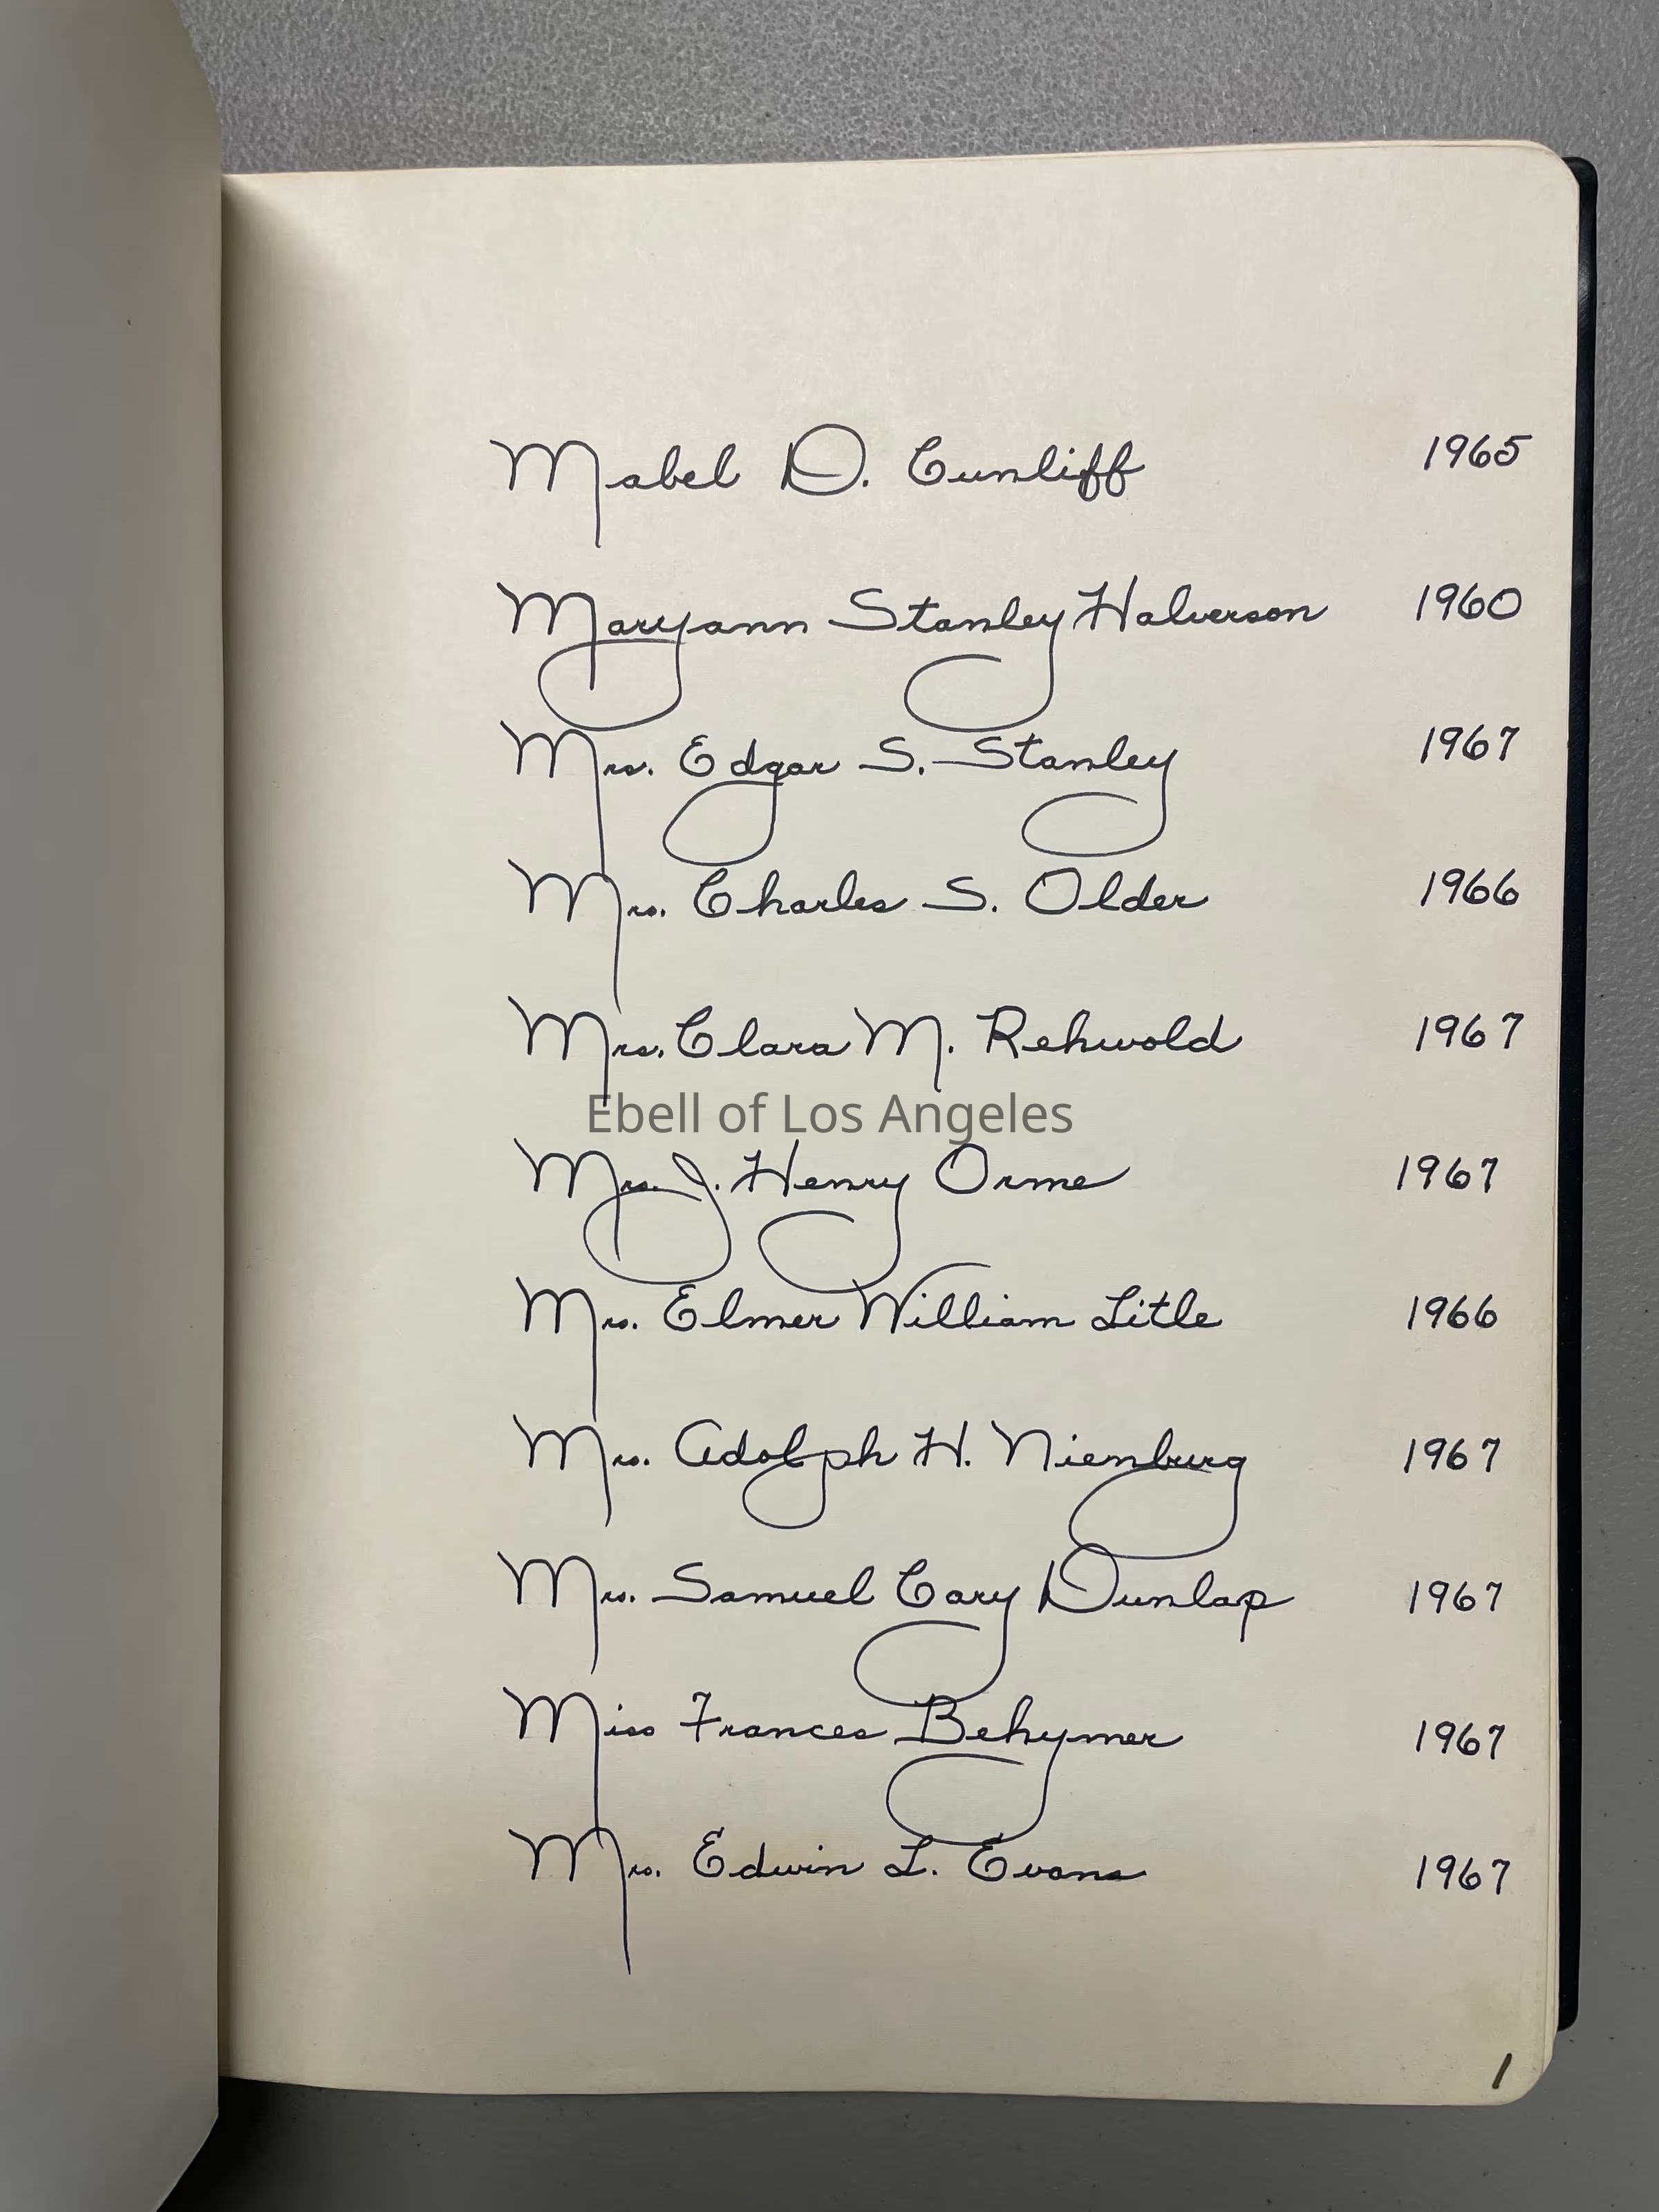 Mabel D. Cunliff 1965
Maryann Stanley Halverson 1960
Mrs. Edgar S. Stanley 1967
Mrs. Charles S. Older 1966
Mrs. Clara M. Rehwold 1967
Ebell of Los Angeles
Mrs. J. Henry Orme 1967
Mrs. Elmer William Litle 1966
Mrs. Adolph H. Nienburg 1967
Mrs. Samuel Cary Dunlap 1967
Miss Frances Behymer 1967
Mrs. Edwin L. Evans 1967
1